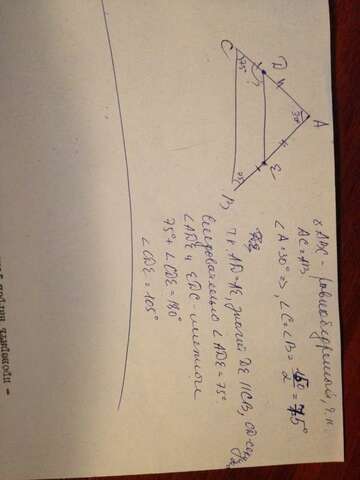 A
30°
D
?
C
75°
E
75°
B
△ABC - равнобедренный, т.к.
AC=AB
∠A=30° => ∠C=∠B=
150/2 = 75°
т.к AD=AE, значит DE || CB, CD-сек,
следовательно ∠ADE=75°.
∠ADE и EDC-смежные
75°+∠CDE=180°
∠CDE=105°